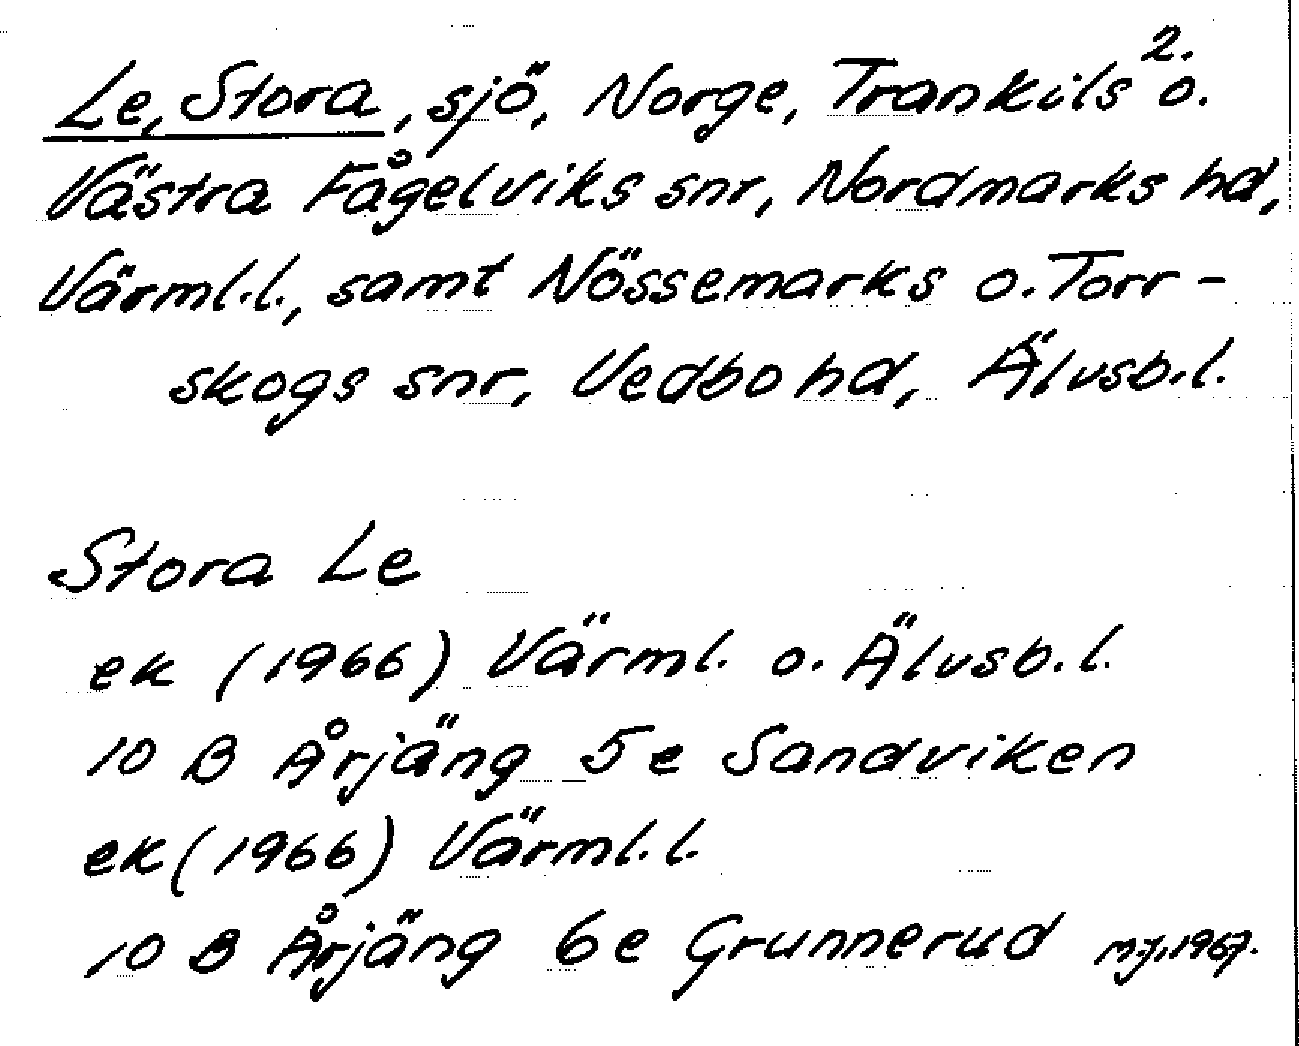 2.
Le, Stora, sjö, Norge, Trankils o.
Västra Fågelviks snr, Nordmarks hd,
Värml.l., samt Nössemarks o. Torr-
skogs snr, Vedbo hd, Älvsb.l.
Stora Le
ek (1966) Värml. o. Älvsb.l.
10 B Årjäng 5e Sandviken
ek (1966) Värml.l.
10 B Årjäng 6e Grunnerud 1967.